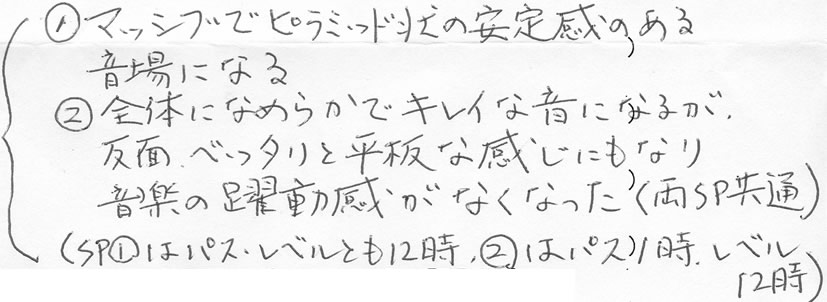 ①マッシブでピラミッド状の安定感のある
音場になる
②全体になめらかでキレイな音になるが、
反面、ベッタリと平板な感じにもなり
音楽の躍動感がなくなった(両SP共通)
(SP①はパス・レベルとも12時、②はパス11時、レベル
12時)